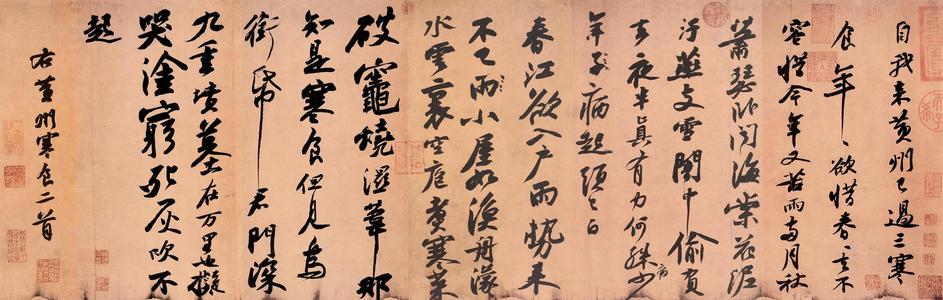 自我來黃州已過三寒
食年〻欲惜春〻去不
容惜今年又苦雨兩月秋
蕭瑟卧聞海棠花泥
汙燕支雪闇中偷負
去夜半真有力何殊少
病
年子病起頭已白
春江欲入户雨勢來
不已雨小屋如漁舟濛〻
水雲裏空庖煑寒菜
破竈燒濕葦那
知是寒食但見烏
銜帋君門深
九重墳墓在万里也擬
哭塗窮死灰吹不
起
右黃州寒食二首